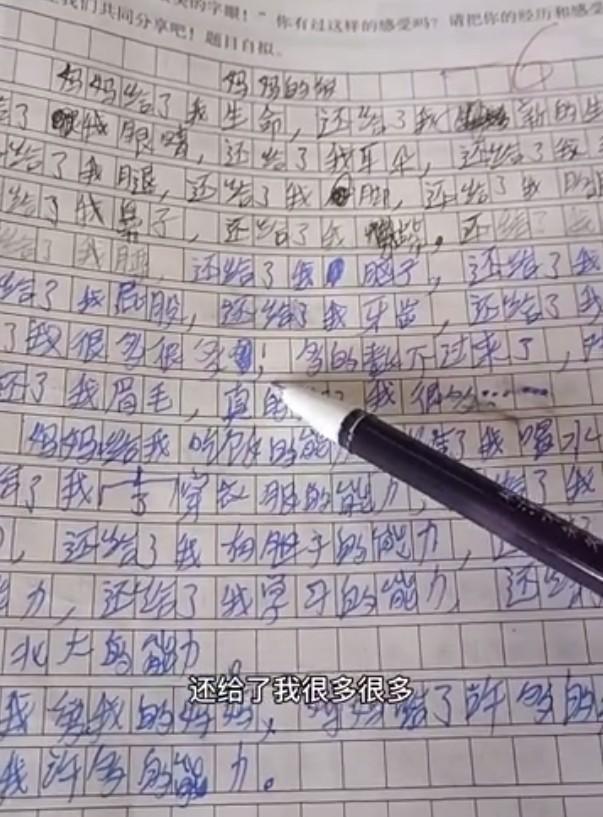 我们共同分享吧！题目自拟。
的字眼！”你有过这样的感受吗？请把你的经历和感受
6
妈妈的
妈妈给了我生命，还给了我新的生
了我眼睛，还给了我牙
给了我腿，还给了我脚，还给了我
给了我鼻子，还给了我嘴，还给
给了我腿，还给了我脑子，还给了我
给了我屁股，还给了我牙齿，还给了我
了我很多很多，多的数不过来了，
还了我眉毛，真的我很多……
妈妈给我吃饭的能 了我喝水
给了我穿衣服的能力，给了我
还给了我 的能力
力，还给了我学习的能力，还给
北大的能力
还给了我很多很多
我 我的妈妈，妈妈给了许多的
我许多的能力。